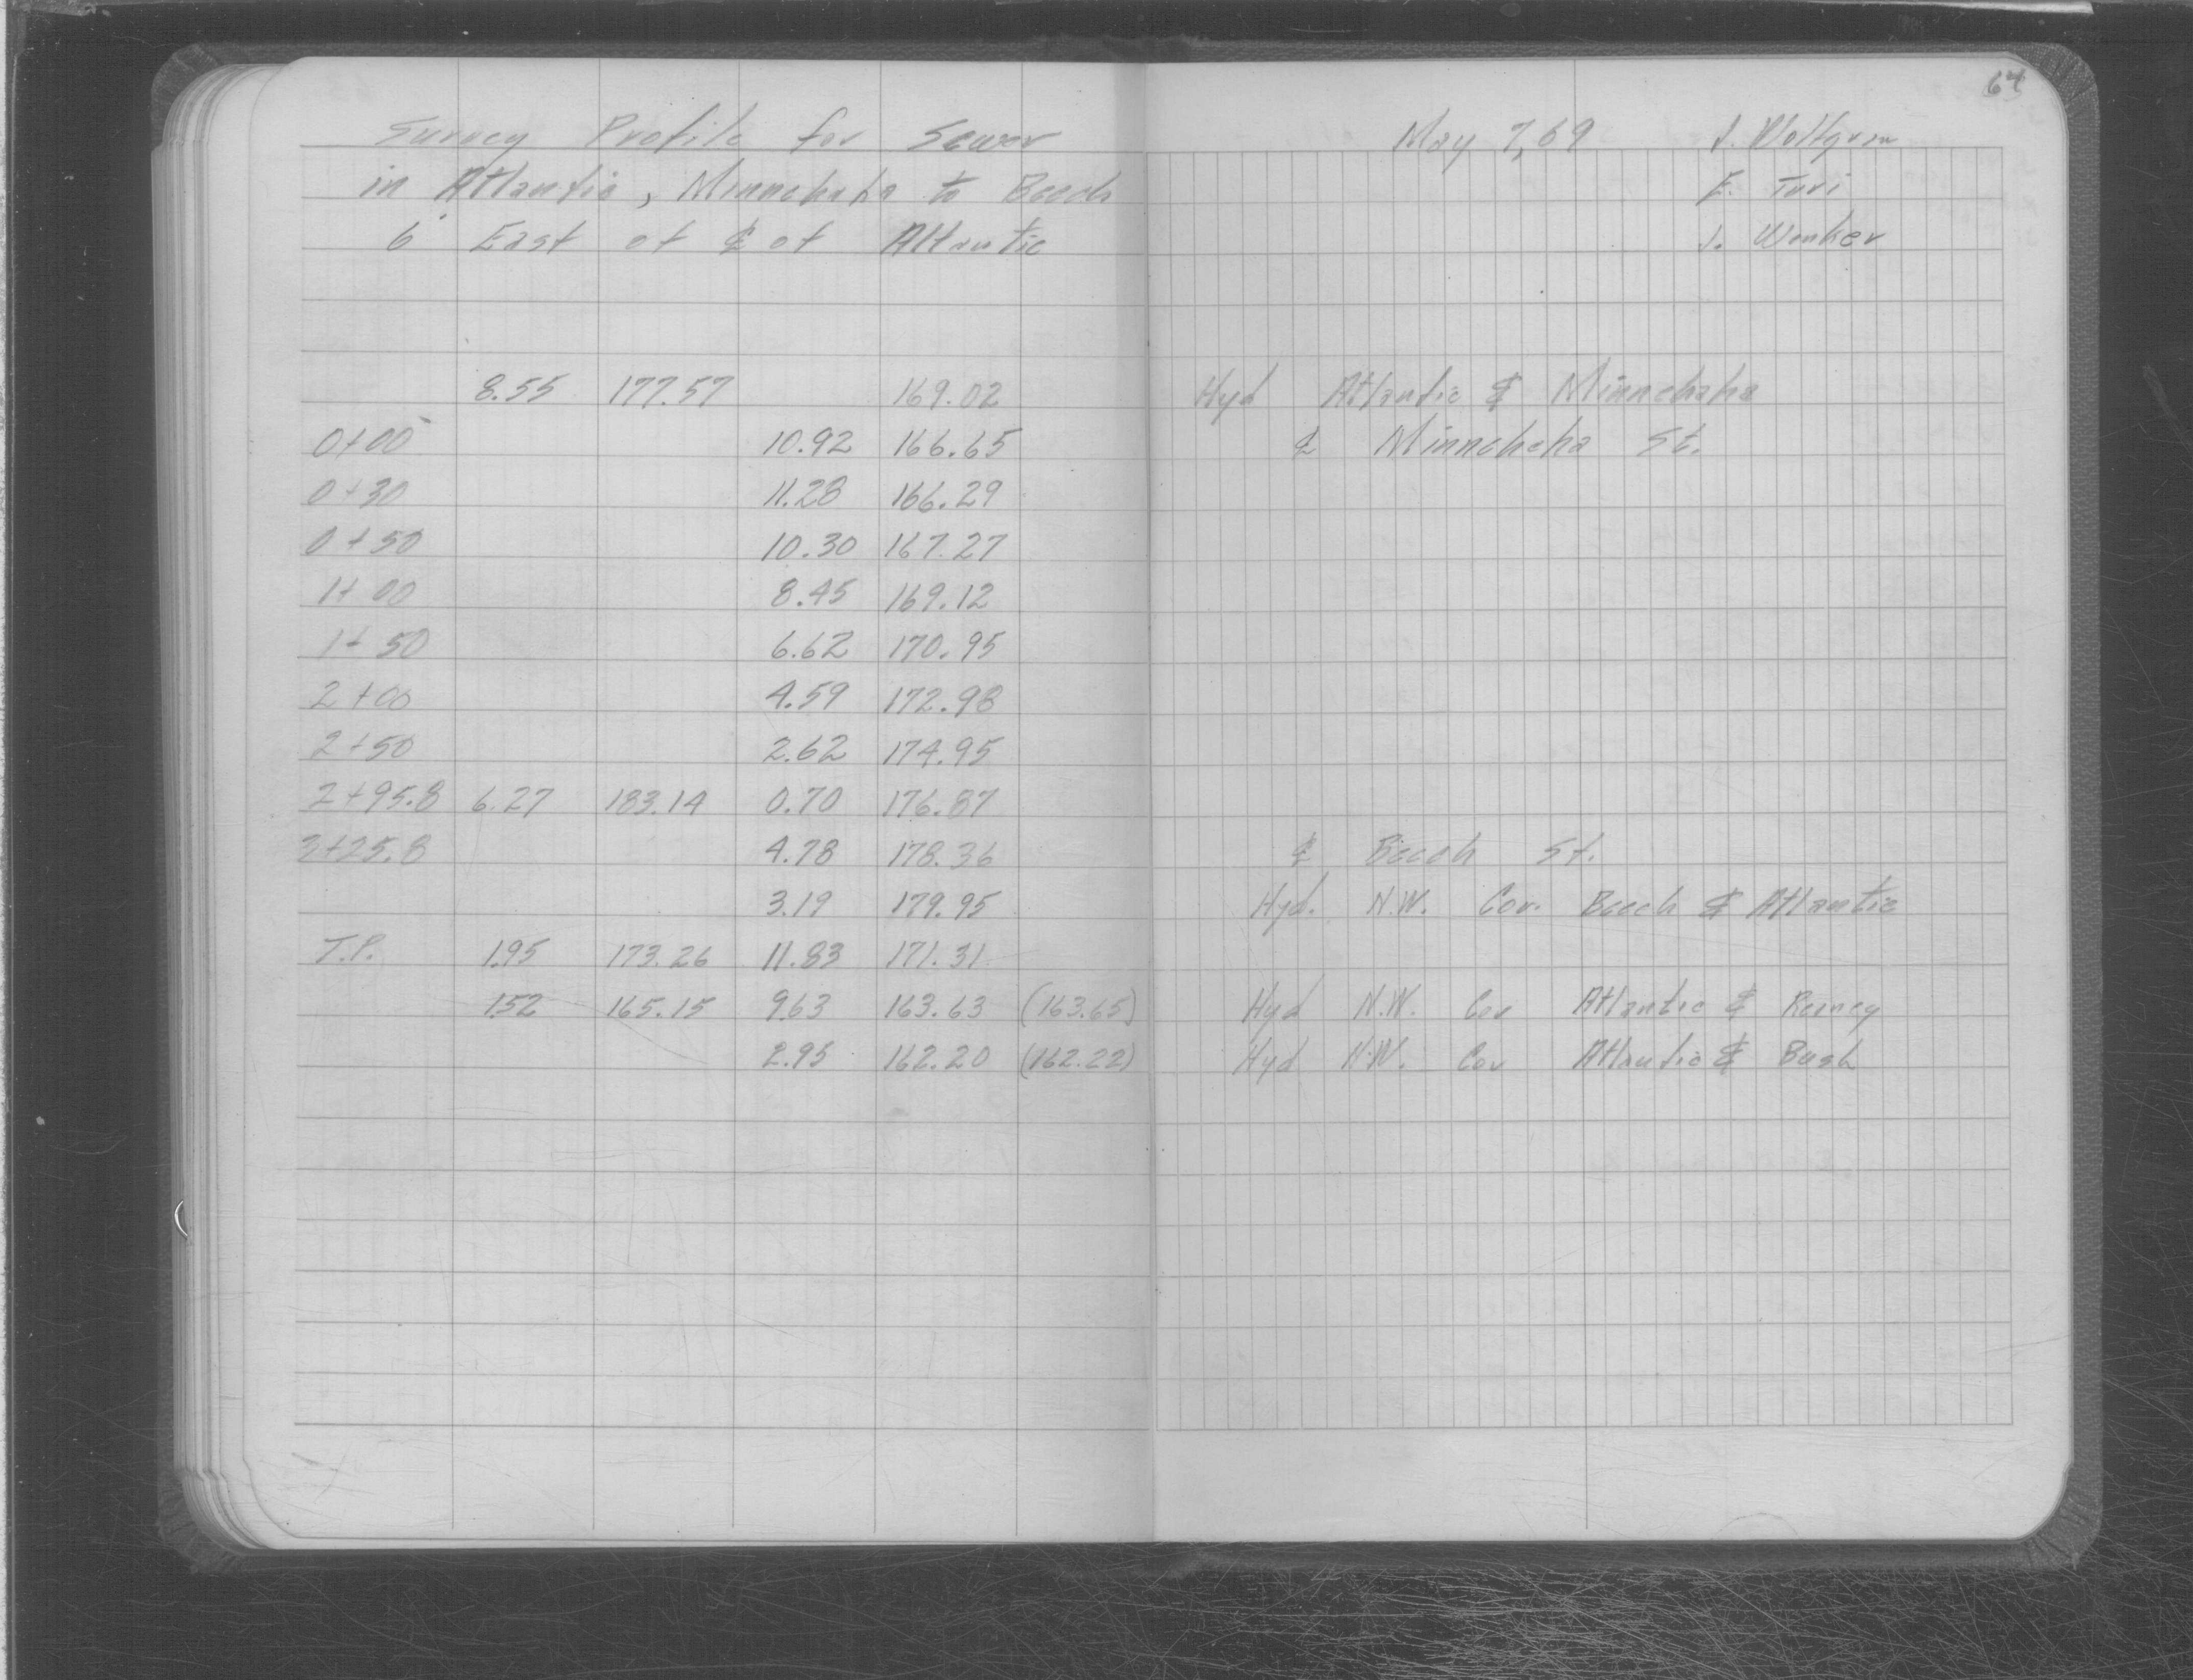 64
Survey Profile for Sewer
in Atlantic, Minnehaha to Beech
6' East of ℄ of Atlantic
May 7, 69 J. Woltgren
E. Turi
J. Wenker
8.55 177.57 169.02 Hyd Atlantic & Minnehaha
0+00 10.92 166.65 ℄ Minnehaha St.
0+30 11.28 166.29
0+50 10.30 167.27
1+00 8.45 169.12
1+50 6.62 170.95
2+00 4.59 172.98
2+50 2.62 174.95
2+95.8 6.27 183.14 0.70 176.87
3+25.8 4.78 178.36 ℄ Beech St.
3.19 179.95 Hyd. N.W. Cor. Beech & Atlantic
T.P. 1.95 173.26 11.83 171.31
1.52 165.15 9.63 163.63 (163.65) Hyd N.W. Cor Atlantic & Reaney
2.95 162.20 (162.22) Hyd N.W. Cor Atlantic & Bush